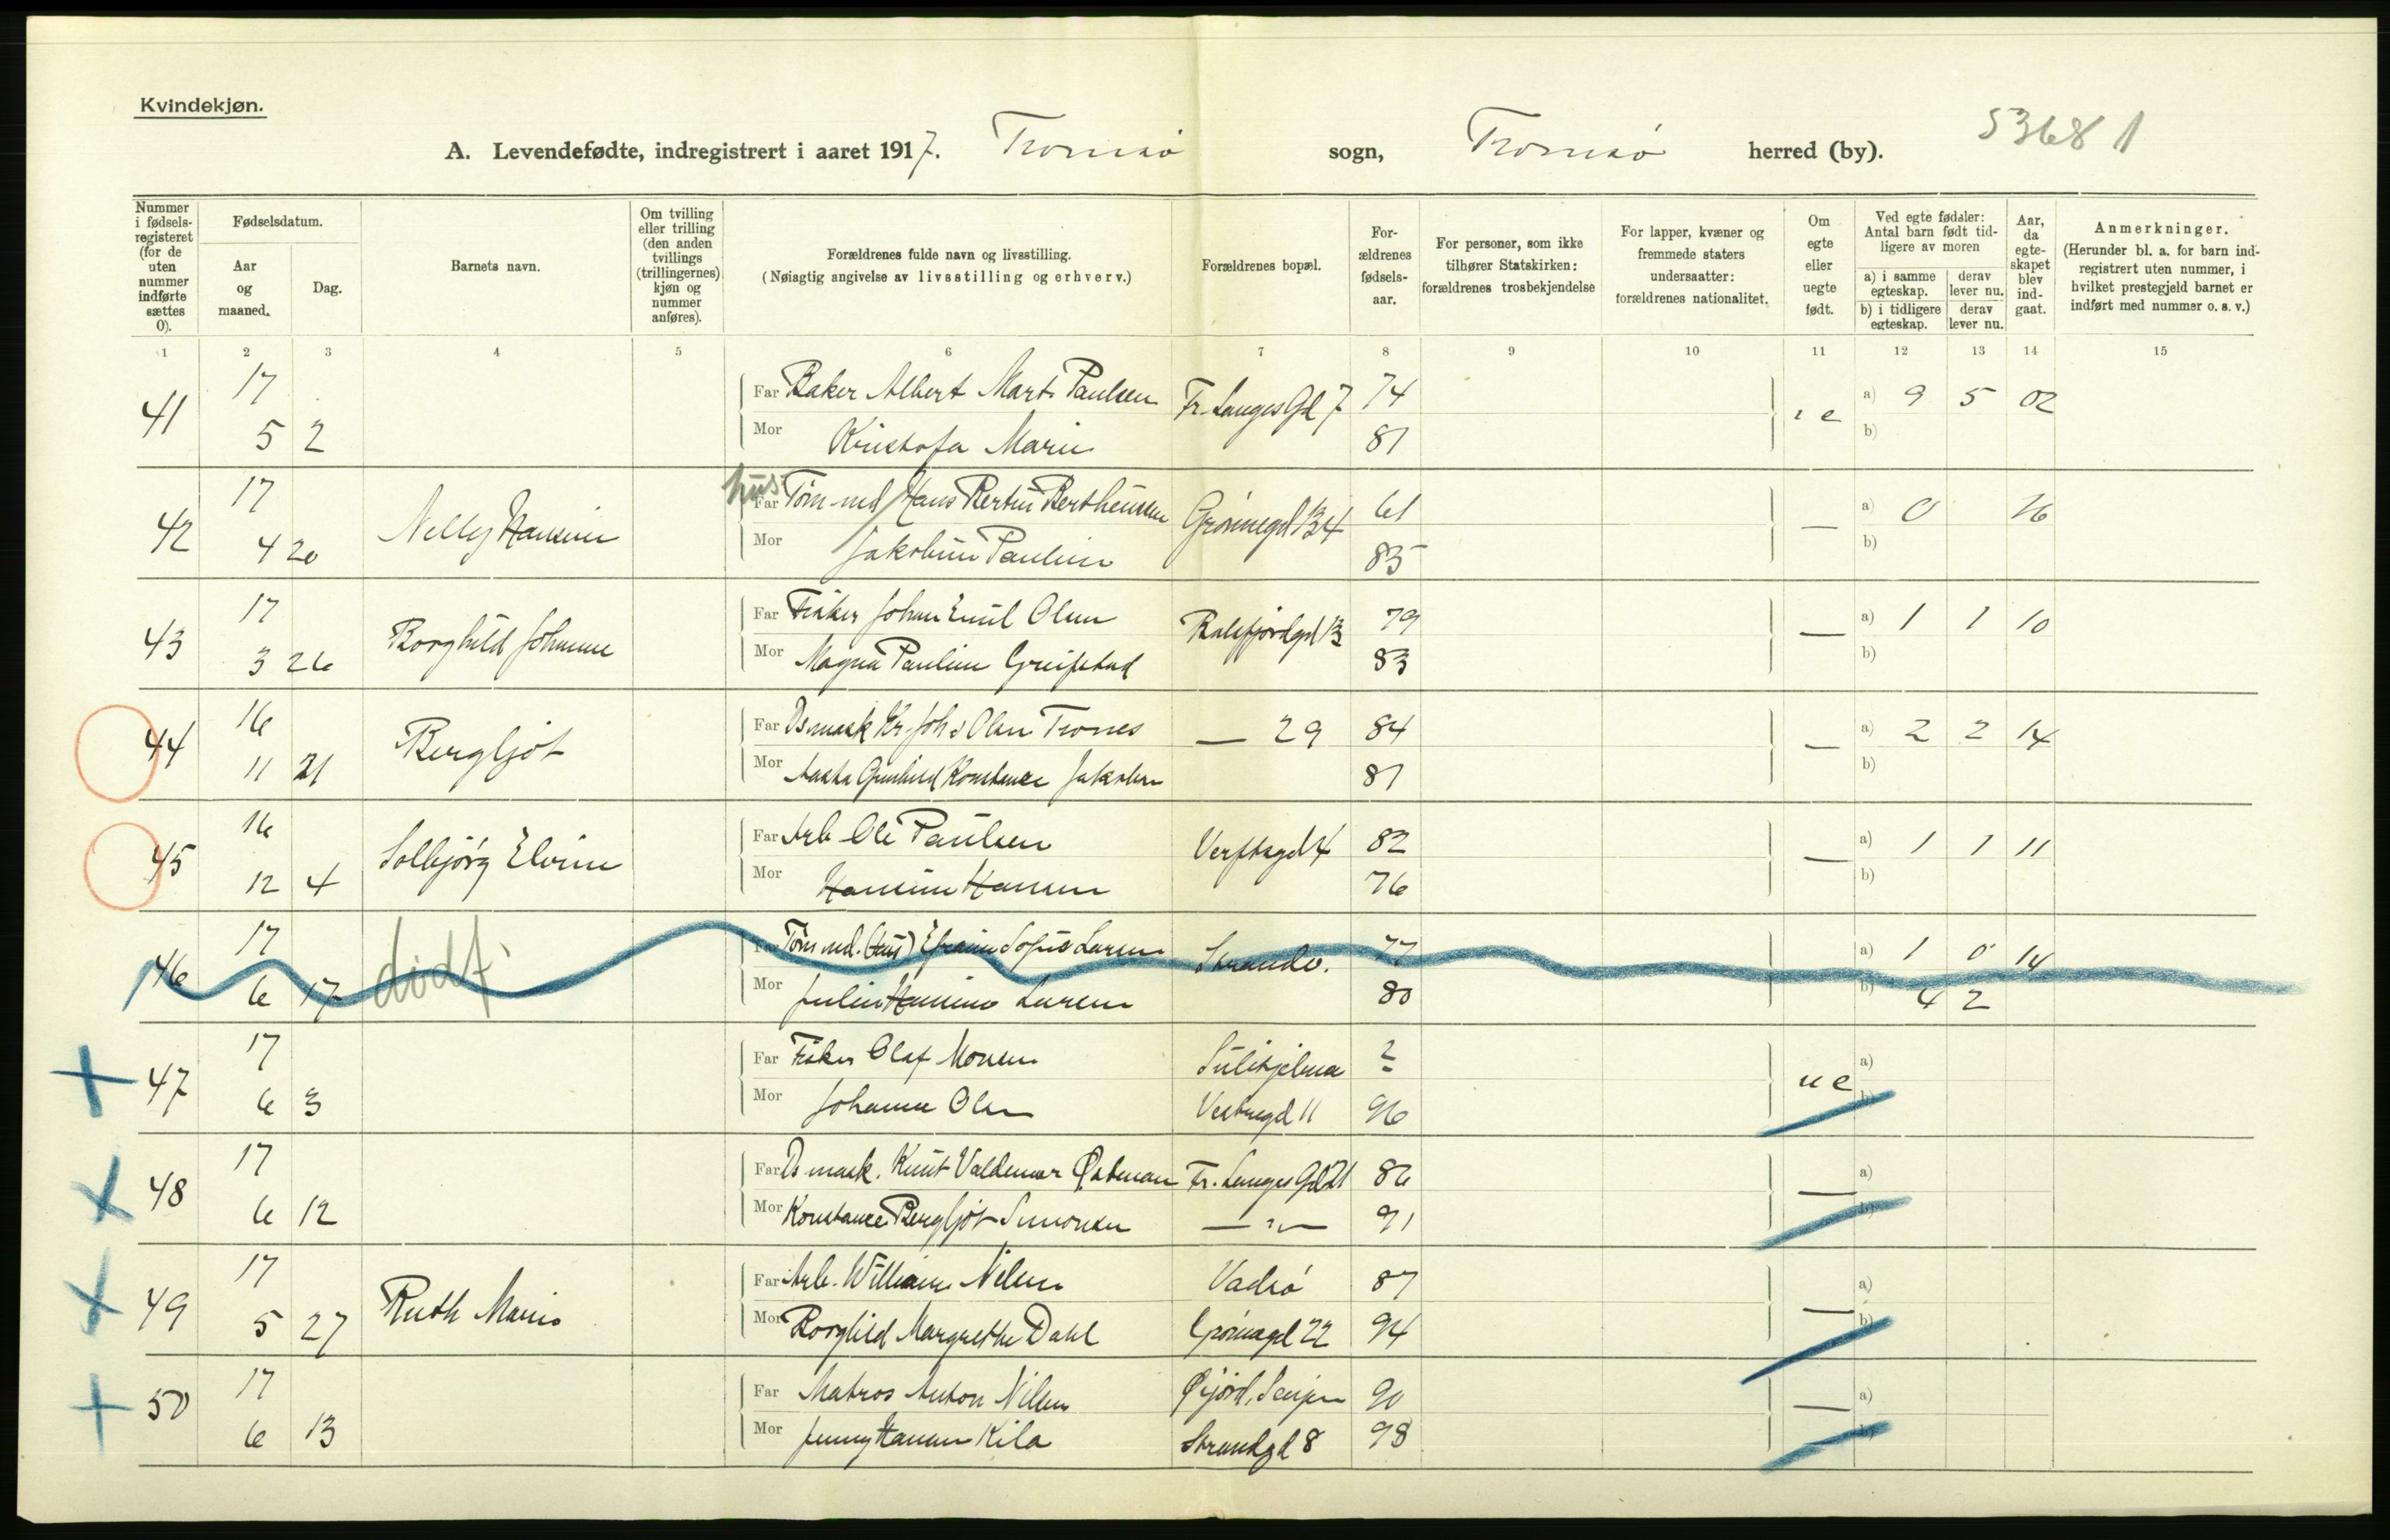 Kvindekjøn.
53681
A. Levendefødte, indregistrert i aaret 1917. Tromsø sogn, Tromsø herred (by).
Nummer i fødsels-registeret (for de uten nummer indførte sættes 0).
Fødselsdatum.
Aar og maaned.
Dag.
Barnets navn.
Om tvilling eller trilling (den anden tvillings (trillingernes) kjøn og nummer anføres).
Forældrenes fulde navn og livsstilling.
(Nøiagtig angivelse av livsstilling og erhverv.)
Forældrenes bopæl.
For-ældrenes fødsels-aar.
For personer, som ikke tilhører Statskirken: forældrenes trosbekjendelse
For lapper, kvæner og fremmede staters undersaatter: forældrenes nationalitet.
Om egte eller uegte født.
Ved egte fødsler: Antal barn født tid-ligere av moren
a) i samme egteskap.
derav lever nu.
b) i tidligere egteskap.
derav lever nu.
Aar, da egte-skapet blev ind-gaat.
Anmerkninger.
(Herunder bl. a. for barn ind-registrert uten nummer, i hvilket prestegjeld barnet er indført med nummer o. s. v.)
1 2 3 4 5 6 7 8 9 10 11 12 13 14 15
41 17 Far Baker Albert Mart. Paulsen Fr. Langes Gd 7 74 e a) 9 5 02
5 2 Mor Kristofa Marie 81 b)
hus
42 17 Nelly Hansine Far Tøm-md Hans Bertin Bertheussen Grønnegd 134 61 — a) 0 16
4 20 Mor Jakobine Pauline 85 b)
43 17 Borghild Johanne Far Fisker Johan Emil Olsen Balsfjordgd 13 79 — a) 1 1 10
3 26 Mor Magna Pauline Greipstad 83 b)
44 16 Bergljot Far Dsmask Kr. Joh s Olsen Trones — 29 84 — a) 2 2 14
11 21 Mor Aasta Gunhild Konstance Jakobsen 81 b)
45 16 Solbjørg Elvine Far Arb Ole Paulsen Verftsgd 4 82 — a) 1 1 11
12 4 Mor Hansine Hansen 76 b)
46 17 dødf. Far Tøm md. (hus) Efraim Sofus Larsen Strandv. 77 a) 1 0 14
6 17 Mor Julie Hansine Larsen 80 b) 4 2
47 17 Far Fisker Olaf Monsen Sulitjelma ? ue a)
6 3 Mor Johanne Olsen Vestregd 11 96 b)
48 17 Far Ds mask. Knut Valdemar Østman Fr. Langes Gd 21 86 — a)
6 12 Mor Konstance Bergljot Simonsen — " — 91 b)
49 17 Ruth Marie Far Arb. William Nilsen Vadsø 87 — a)
5 27 Mor Borghild Margrethe Dahl Grønnegd 22 94 b)
50 17 Far Matros Anton Nilsen Øfjord, Senjen 90 — a)
6 13 Mor Jenny Hansen Kila Strandgd 8 98 b)